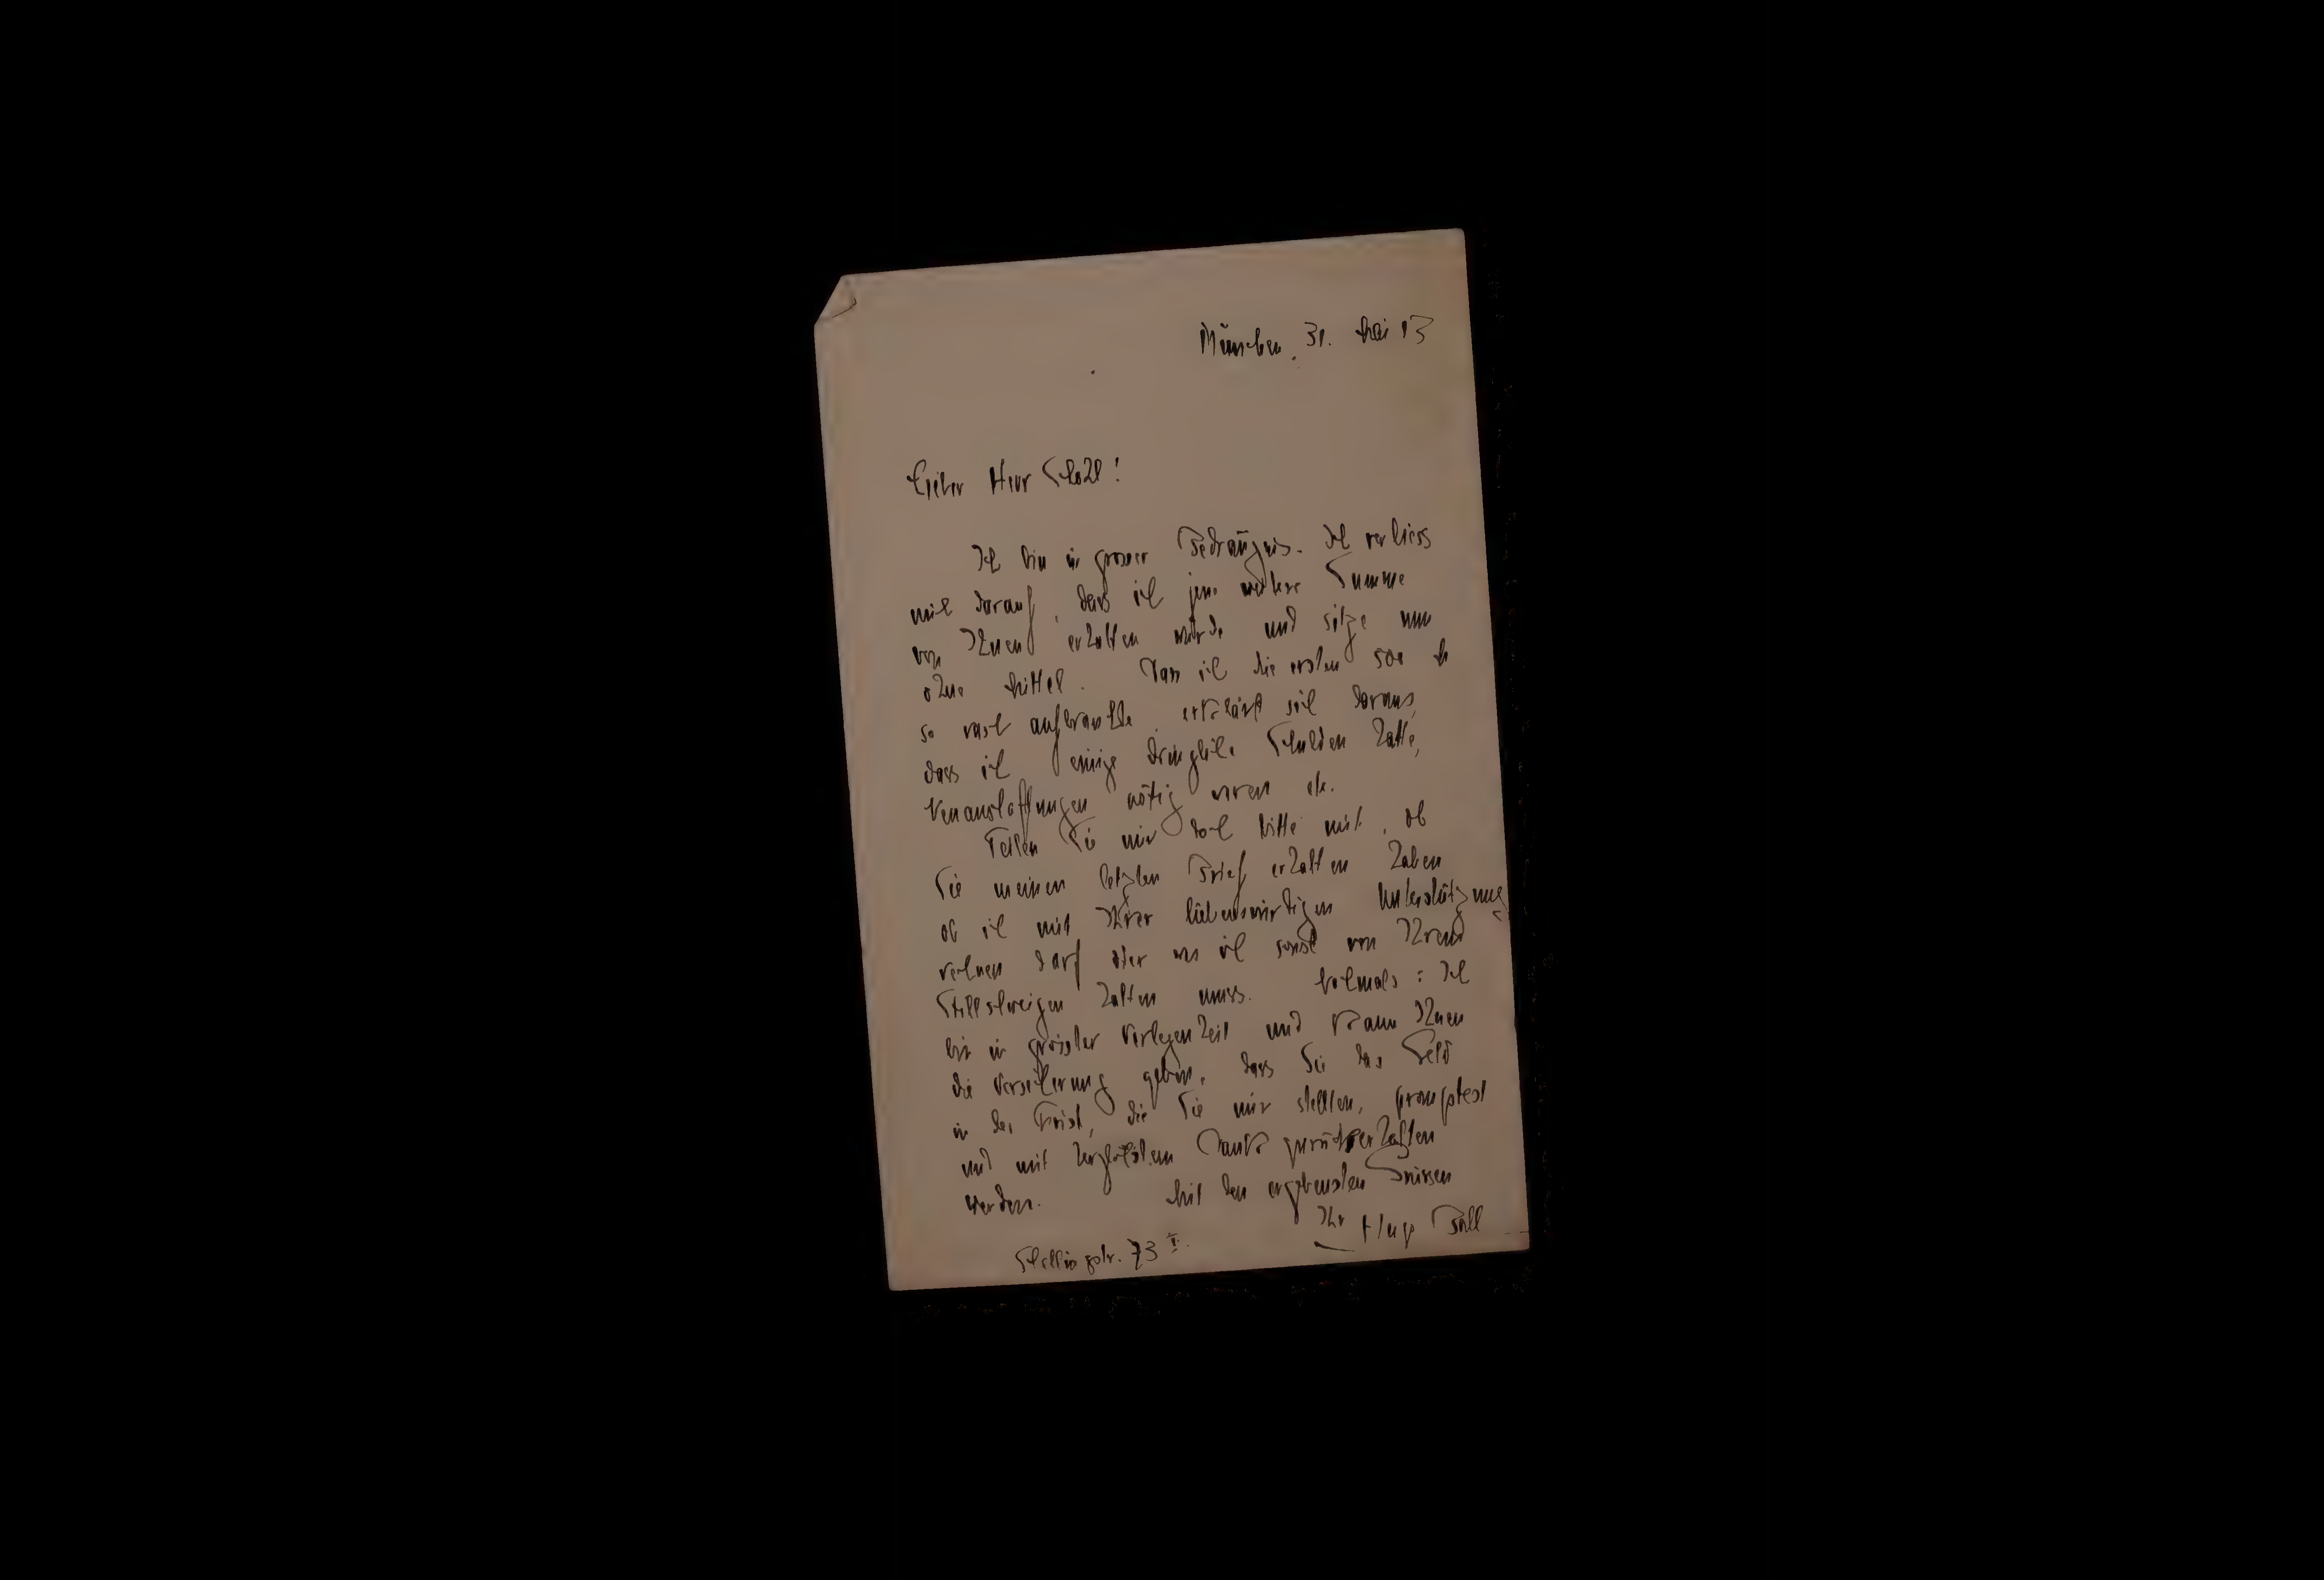 München, 31. Mai 13
Lieber Herr
Ich bin in grosser Bedrängnis. Ich verliess
mich darauf, dass ich jene weitere Summe
von Ihnen erhalten würde und sitze nun
ohne Mittel. Dass ich die ersten 500 M
so rasch aufbrauchte, erklärt sich daraus,
dass ich einige dringliche Schulden hatte,
Neuanschaffungen nötig waren etc.
Teilen Sie mir doch bitte mit, ob
Sie meinen letzten Brief erhalten haben
ob ich mit Ihrer liebenswürdigen Unterstützung
rechnen darf oder was ich sonst von Ihrem
Stillschweigen halten muss. Nochmals: Ich
bin in grösster Verlegenheit und kann Ihnen
die Versicherung geben, dass Sie das Geld
in der Frist, die Sie mir stellten, promptest
und mit herzlichstem Dank zurückerhalten
werden. Mit den ergebensten Grüssen
Ihr Hugo Ball
Schellingstr. 73 I.